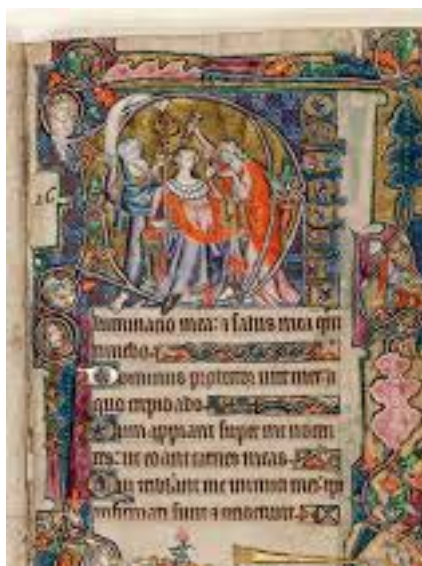 26
luminatio mea: & salus mea que
timebo.
Dominus protector uite mee a
quo trepidabo.
Dum appiant super me nocen
tes: ut edant carnes meas.
Qui tribulant me inimici mei:
infirmati sunt & ceciderunt.